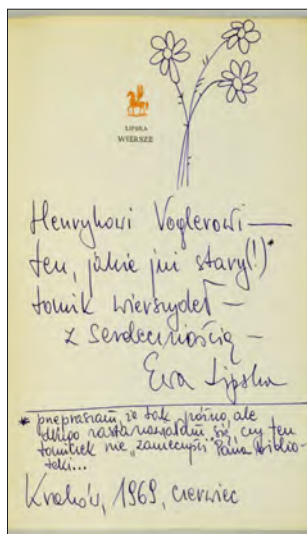 LIPSKA
WIERSZE
Henrykowi Voglerowi —
ten, jakże już stary(!)*
tomik wierszydeł —
z serdecznością —
Ewa Lipska
* przepraszam, że tak późno, ale
długo zastanawiałam się, czy ten
tomiczek nie „zanieczyści" Pana Biblio-
teki...
Kraków, 1969, czerwiec